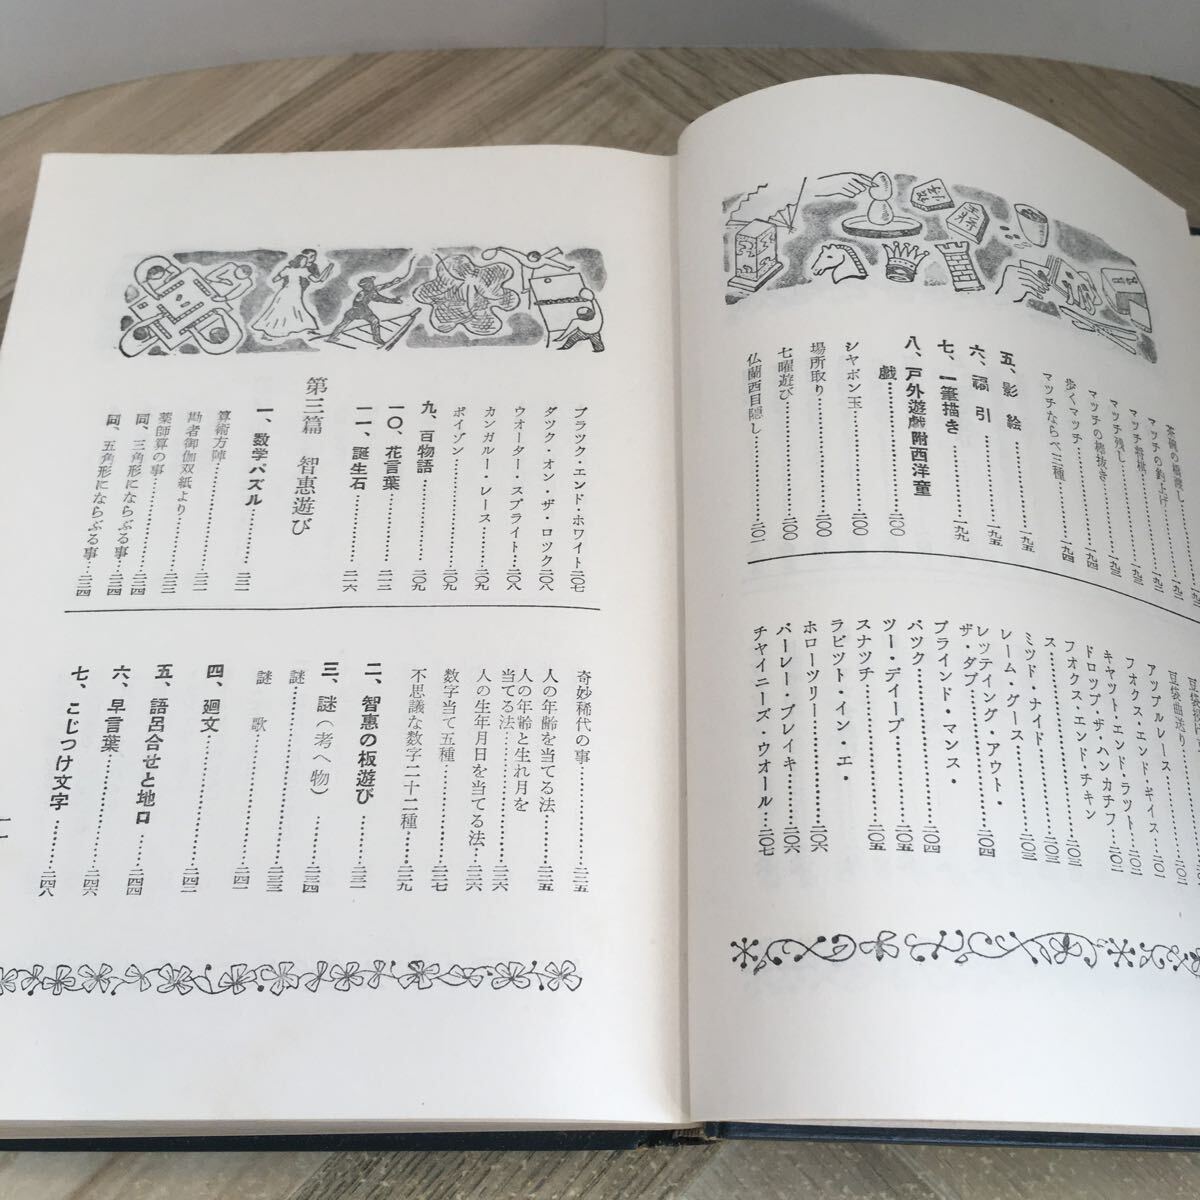 マッチの釣上げ……一九二
マッチの棒抜き……一九三
マッチ将棋……一九三
マッチ残し……一九三
歩くマッチ……一九四
マッチならべ三種……一九四
五、影絵……一九五
六、福引……一九五
七、一筆描き……一九九
八、戸外遊戯附西洋童
戯……二〇〇
シャボン玉……二〇〇
場所取り……二〇〇
七曜遊び……二〇〇
仏蘭西目隠し……二〇一
豆袋曲送り……二〇一
アップルレース……二〇一
フオクス・エンド・ギイス……二〇一
キャツト・エンド・ラツト……二〇二
ドロップ・ザ・ハンカチフ……二〇二
フオクス・エンド・チキン
ス……二〇三
ミツド・ナイド……二〇三
レーム・グース……二〇三
レッテイング・アウト・
ザ・ダブ……二〇四
ブラインド・マンス・
バツク……二〇四
ツー・デイープ……二〇五
スナッチ……二〇五
ラビツト・イン・エ・
ホローツリー……二〇六
バーレー・ブレイキ……二〇六
チャイニーズ・ウオール……二〇七
ブラック・エンド・ホワイト二〇七
ダック・オン・ザ・ロック二〇八
ウオーター・スプライト……二〇八
カンガルー・レース……二〇九
ポイゾン……二〇九
九、百物語……二〇九
一〇、花言葉……二一二
一一、誕生石……二一六
第三篇 智恵遊び
一、数学パズル……二二一
算術方陣……二二一
勘者御伽双紙より……二二一
薬師算の事……二二三
同、三角形にならぶる事……二二四
同、五角形にならぶる事……二二四
奇妙稀代の事……二二五
人の年齢を当てる法……二二五
人の年齢と生れ月を
当てる法……二二六
人の生年月日を当てる法……二二六
数字当て五種……二二七
不思議な数字二十二種……二二九
二、智恵の板遊び……二三一
三、謎（考へ物）……二三四
謎……二三三
謎 歌……二四一
四、廻文……二四二
五、語呂合せと地口……二四四
六、早言葉……二四六
七、こじつけ文字……二四八